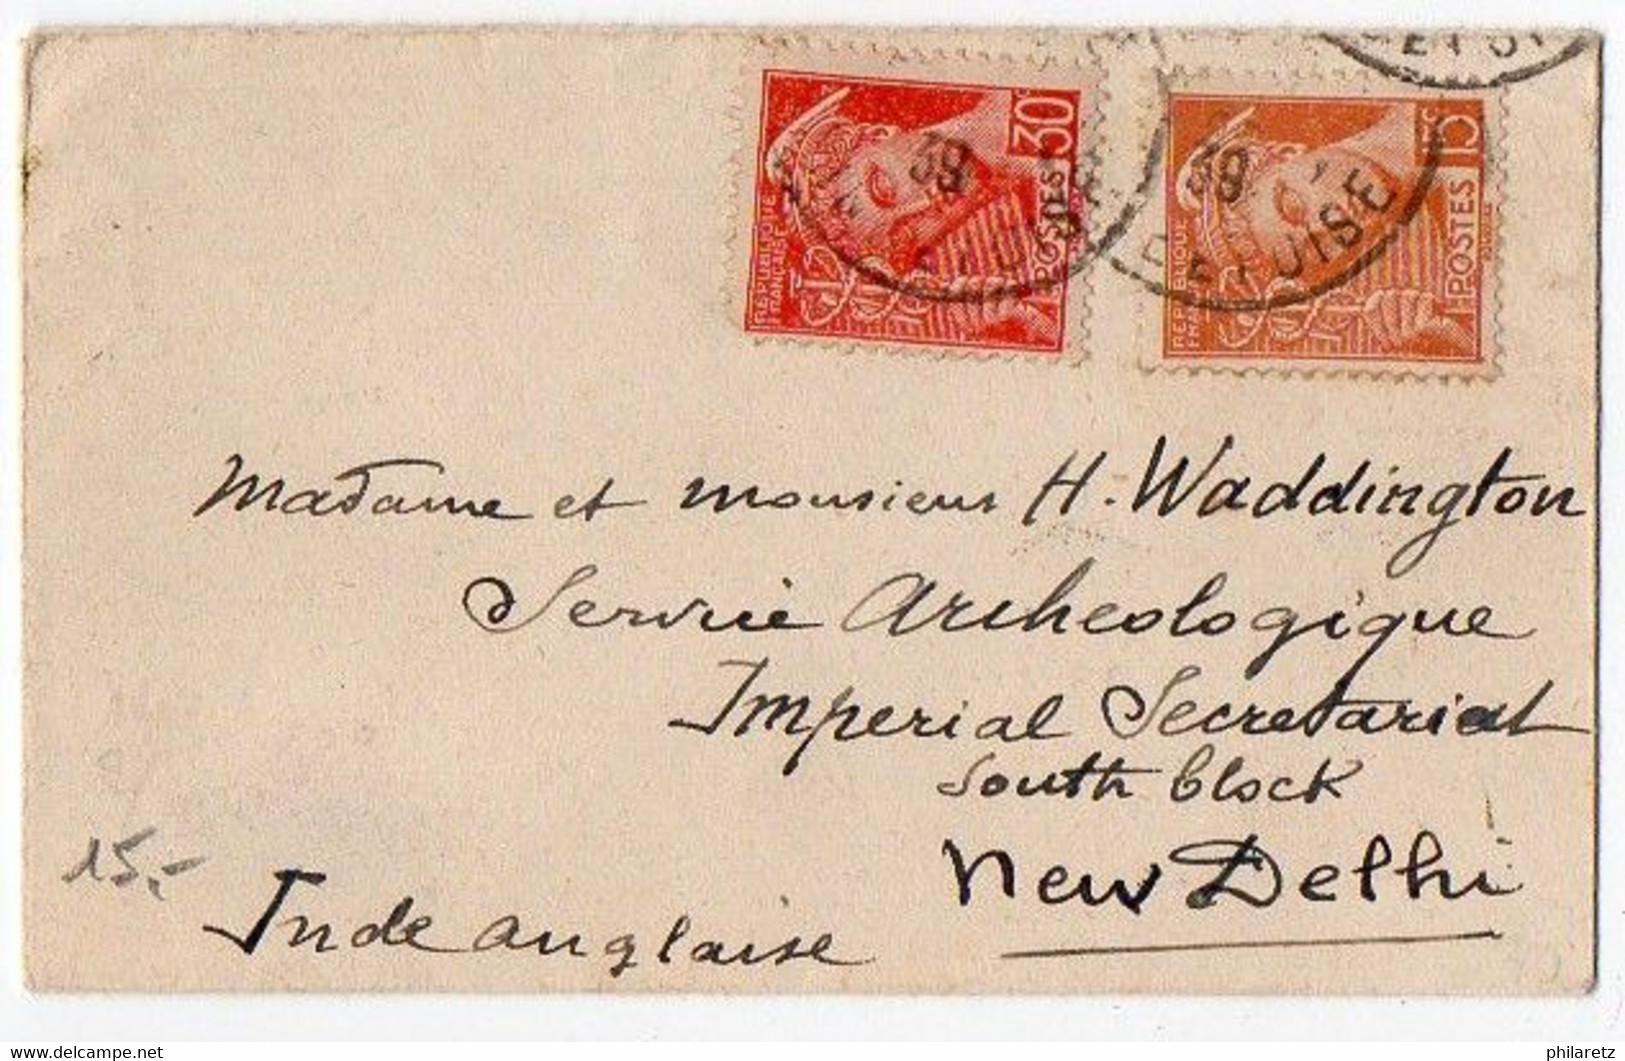 30c
POSTES
REPUBLIQUE
FRANÇAISE
39
15c
POSTES
REPUBLIQUE
39
Madame et monsieur H. Waddington
Service Archeologique
Imperial Secretariat
South block
New Delhi
Inde anglaise
15,-
delcampe.net
philaretz